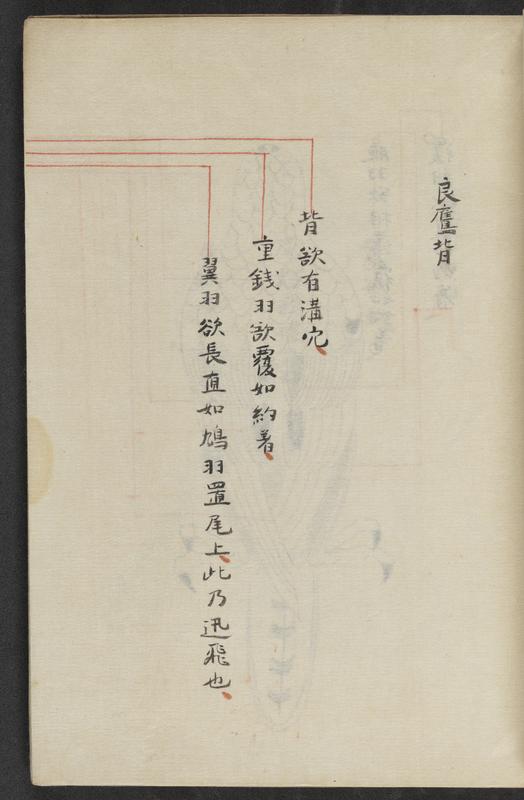 良鷹背
背欲有溝穴
重錢羽欲覆如約着
翼羽欲長直如鳩羽置尾上此乃迅飛也